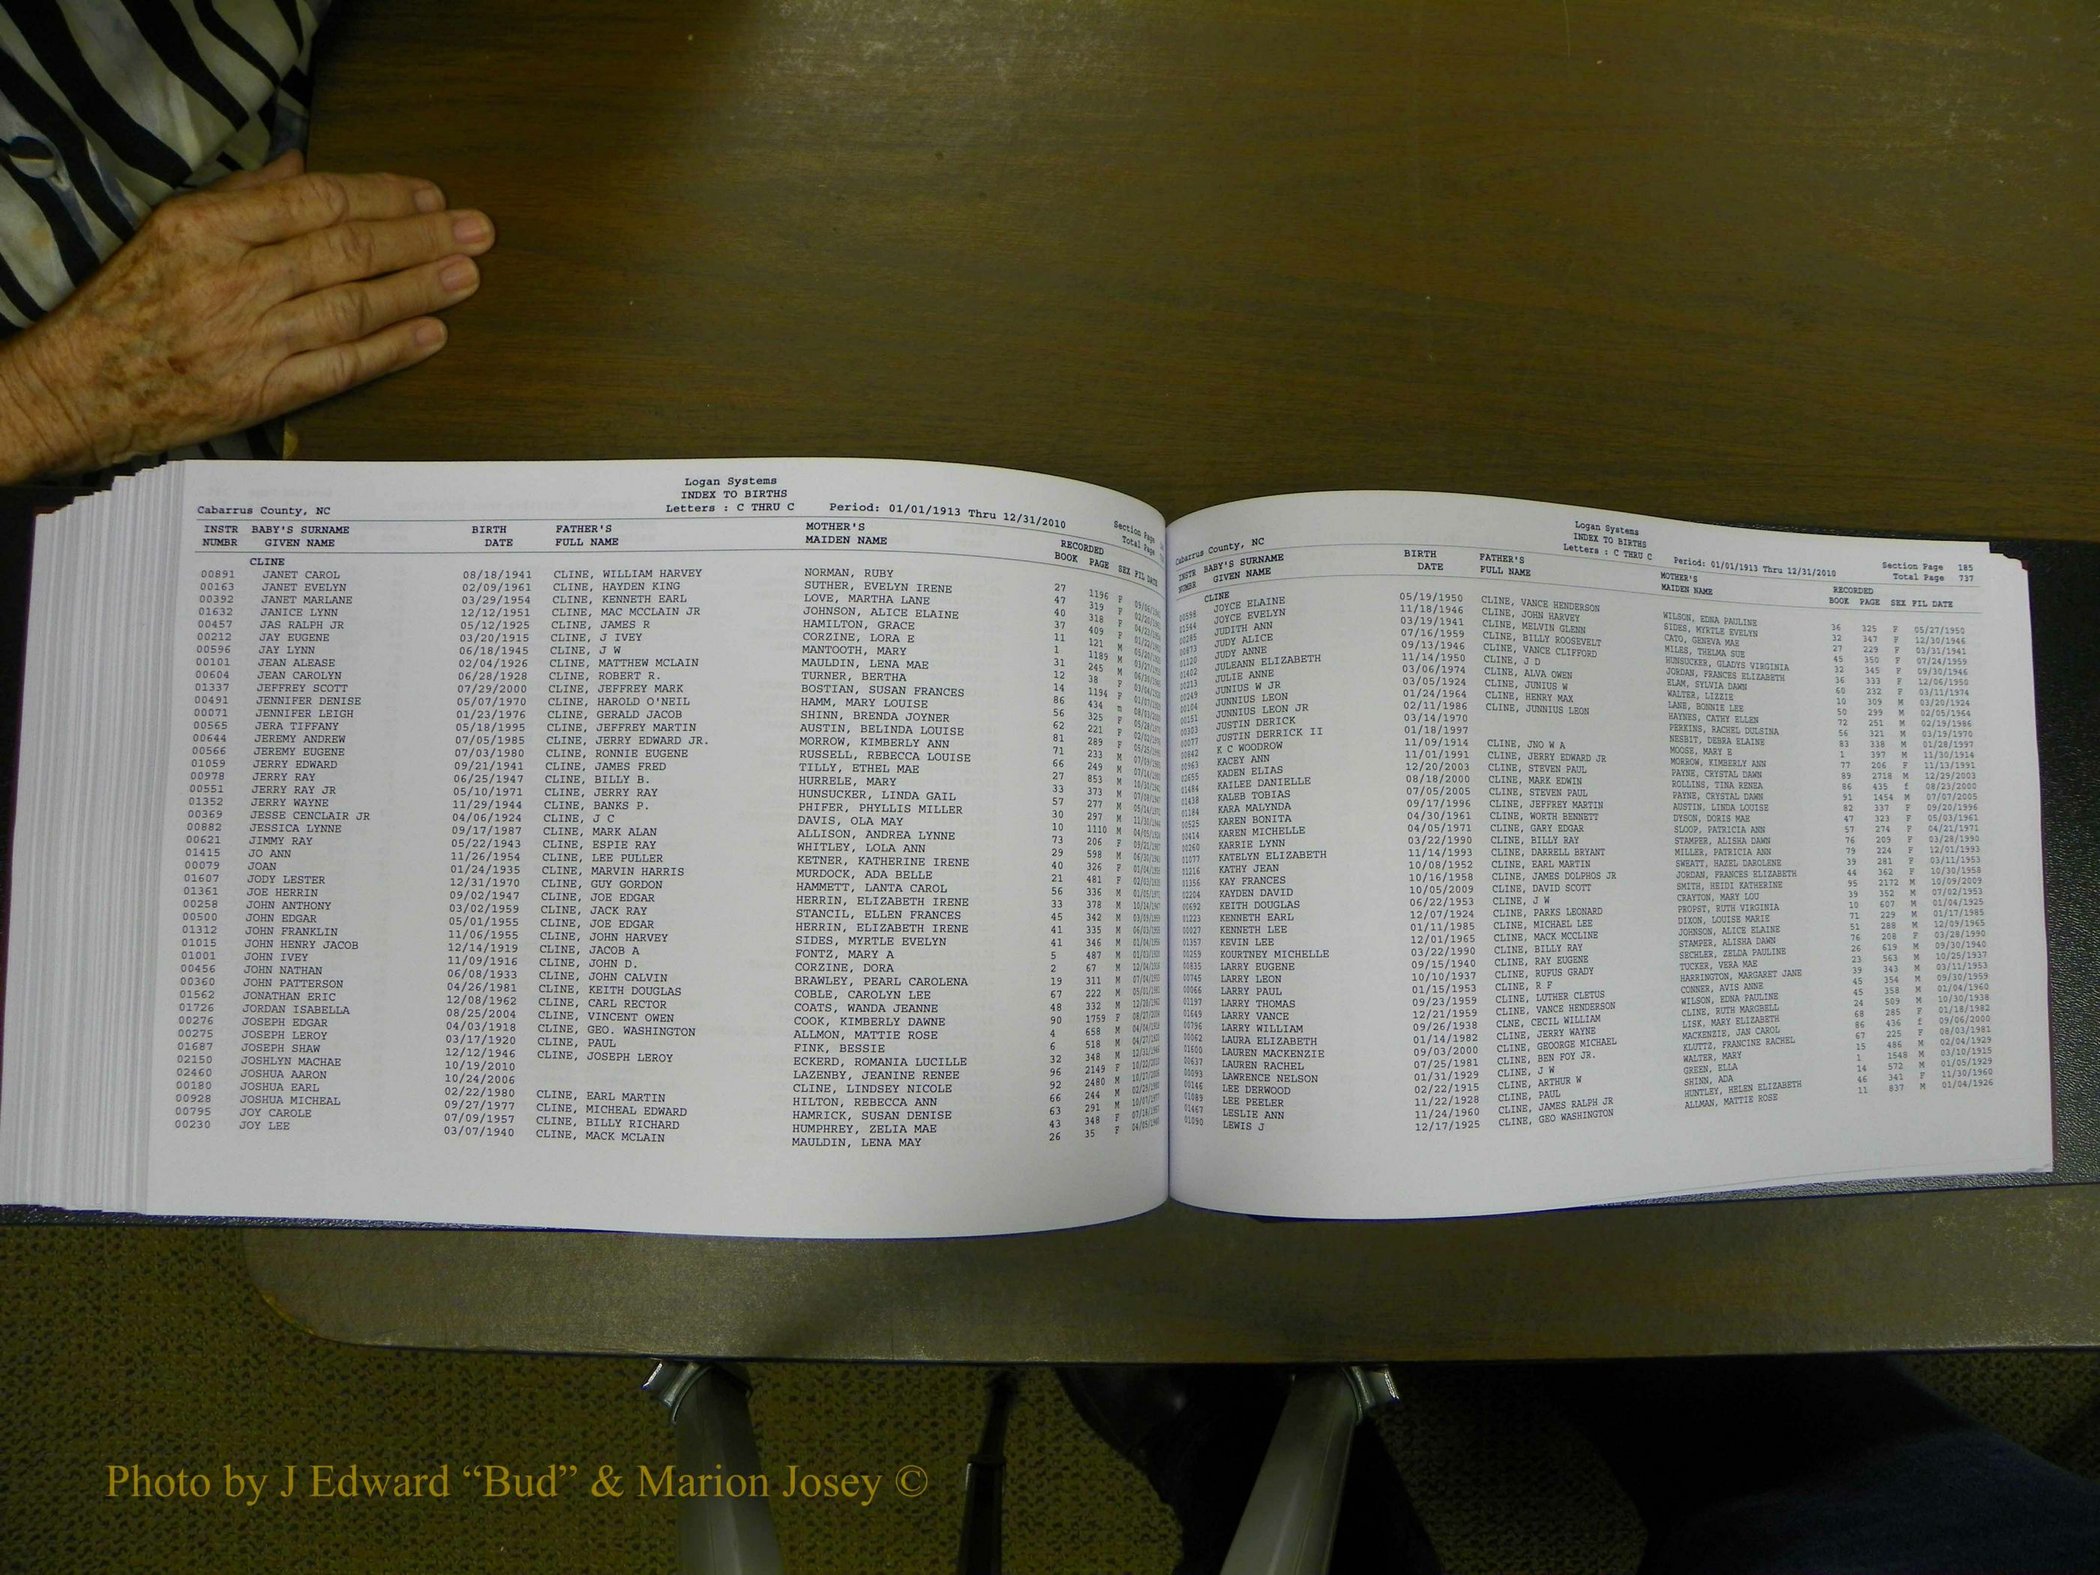 Logan Systems
INDEX TO BIRTHS
Cabarrus County, NC Letters : C THRU C Period: 01/01/1913 Thru 12/31/2010 Section Page
Total Page
INSTR BABY'S SURNAME BIRTH FATHER'S MOTHER'S RECORDED
NUMBR GIVEN NAME DATE FULL NAME MAIDEN NAME BOOK PAGE SEX FIL DATE
CLINE
00891 JANET CAROL 08/18/1941 CLINE, WILLIAM HARVEY NORMAN, RUBY 27 1196 F
00163 JANET EVELYN 02/09/1961 CLINE, HAYDEN KING SUTHER, EVELYN IRENE 47 319 F
00392 JANET MARLANE 03/29/1954 CLINE, KENNETH EARL LOVE, MARTHA LANE 40 318 F
01632 JANICE LYNN 12/12/1951 CLINE, MAC MCCLAIN JR JOHNSON, ALICE ELAINE 37 409 F
00457 JAS RALPH JR 05/12/1925 CLINE, JAMES R HAMILTON, GRACE 11 121 M
00212 JAY EUGENE 03/20/1915 CLINE, J IVEY CORZINE, LORA E 1 1189 M
00596 JAY LYNN 06/18/1945 CLINE, J W MANTOOTH, MARY 31 245 M
00101 JEAN ALEASE 02/04/1926 CLINE, MATTHEW MCLAIN MAULDIN, LENA MAE 12 38 F
00604 JEAN CAROLYN 06/28/1928 CLINE, ROBERT R. TURNER, BERTHA 14 1194 F
01337 JEFFREY SCOTT 07/29/2000 CLINE, JEFFREY MARK BOSTIAN, SUSAN FRANCES 86 434 m
00491 JENNIFER DENISE 05/07/1970 CLINE, HAROLD O'NEIL HAMM, MARY LOUISE 56 325 F
00071 JENNIFER LEIGH 01/23/1976 CLINE, GERALD JACOB SHINN, BRENDA JOYNER 62 221 F
00565 JERA TIFFANY 05/18/1995 CLINE, JEFFREY MARTIN AUSTIN, BELINDA LOUISE 81 289 F
00644 JEREMY ANDREW 07/05/1985 CLINE, JERRY EDWARD JR. MORROW, KIMBERLY ANN 71 233 M
00566 JEREMY EUGENE 07/03/1980 CLINE, RONNIE EUGENE RUSSELL, REBECCA LOUISE 66 249 M
01059 JERRY EDWARD 09/21/1941 CLINE, JAMES FRED TILLY, ETHEL MAE 27 853 M
00978 JERRY RAY 06/25/1947 CLINE, BILLY B. HURRELE, MARY 33 373 M
00551 JERRY RAY JR 05/10/1971 CLINE, JERRY RAY HUNSUCKER, LINDA GAIL 57 277 M
01352 JERRY WAYNE 11/29/1944 CLINE, BANKS P. PHIFER, PHYLLIS MILLER 30 297 M
00369 JESSE CENCLAIR JR 04/06/1924 CLINE, J C DAVIS, OLA MAY 10 1110 M
00882 JESSICA LYNNE 09/17/1987 CLINE, MARK ALAN ALLISON, ANDREA LYNNE 73 206 F
00621 JIMMY RAY 05/22/1943 CLINE, ESPIE RAY WHITLEY, LOLA ANN 29 598 M
01415 JO ANN 11/26/1954 CLINE, LEE PULLER KETNER, KATHERINE IRENE 40 326 F
00079 JOAN 01/24/1935 CLINE, MARVIN HARRIS MURDOCK, ADA BELLE 21 481 F
01607 JODY LESTER 12/31/1970 CLINE, GUY GORDON HAMMETT, LANTA CAROL 56 336 M
01361 JOE HERRIN 09/02/1947 CLINE, JOE EDGAR HERRIN, ELIZABETH IRENE 33 378 M
00258 JOHN ANTHONY 03/02/1959 CLINE, JACK RAY STANCIL, ELLEN FRANCES 45 342 M
00500 JOHN EDGAR 05/01/1955 CLINE, JOE EDGAR HERRIN, ELIZABETH IRENE 41 335 M
01312 JOHN FRANKLIN 11/06/1955 CLINE, JOHN HARVEY SIDES, MYRTLE EVELYN 41 346 M
01015 JOHN HENRY JACOB 12/14/1919 CLINE, JACOB A FONTZ, MARY A 5 487 M
01001 JOHN IVEY 11/09/1916 CLINE, JOHN D. CORZINE, DORA 2 67 M
00456 JOHN NATHAN 06/08/1933 CLINE, JOHN CALVIN BRAWLEY, PEARL CAROLENA 19 311 M
00360 JOHN PATTERSON 04/26/1981 CLINE, KEITH DOUGLAS COBLE, CAROLYN LEE 67 222 M
01562 JONATHAN ERIC 12/08/1962 CLINE, CARL RECTOR COATS, WANDA JEANNE 48 332 M
01726 JORDAN ISABELLA 08/25/2004 CLINE, VINCENT OWEN COOK, KIMBERLY DAWNE 90 1759 F
00276 JOSEPH EDGAR 04/03/1918 CLINE, GEO. WASHINGTON ALLMON, MATTIE ROSE 4 658 M
00275 JOSEPH LEROY 03/17/1920 CLINE, PAUL FINK, BESSIE 6 518 M
01687 JOSEPH SHAW 12/12/1946 CLINE, JOSEPH LEROY ECKERD, ROMANIA LUCILLE 32 348 M
02150 JOSHLYN MACHAE 10/19/2010 LAZENBY, JEANINE RENEE 96 2149 F
02460 JOSHUA AARON 10/24/2006 CLINE, LINDSEY NICOLE 92 2480 M
00180 JOSHUA EARL 02/22/1980 CLINE, EARL MARTIN HILTON, REBECCA ANN 66 244 M
00928 JOSHUA MICHEAL 09/27/1977 CLINE, MICHEAL EDWARD HAMRICK, SUSAN DENISE 63 291 M
00795 JOY CAROLE 07/09/1957 CLINE, BILLY RICHARD HUMPHREY, ZELIA MAE 43 348 F
00230 JOY LEE 03/07/1940 CLINE, MACK MCLAIN MAULDIN, LENA MAY 26 35 F
Logan Systems
INDEX TO BIRTHS
Cabarrus County, NC Letters : C THRU C Period: 01/01/1913 Thru 12/31/2010 Section Page 185
Total Page 737
INSTR BABY'S SURNAME BIRTH FATHER'S MOTHER'S RECORDED
NUMBR GIVEN NAME DATE FULL NAME MAIDEN NAME BOOK PAGE SEX FIL DATE
CLINE
00598 JOYCE ELAINE 05/19/1950 CLINE, VANCE HENDERSON WILSON, EDNA PAULINE 36 325 F 05/27/1950
01544 JOYCE EVELYN 11/18/1946 CLINE, JOHN HARVEY SIDES, MYRTLE EVELYN 32 347 F 12/30/1946
00285 JUDITH ANN 03/19/1941 CLINE, MELVIN GLENN CATO, GENEVA MAE 27 229 F 03/31/1941
00873 JUDY ALICE 07/16/1959 CLINE, BILLY ROOSEVELT MILES, THELMA SUE 45 350 F 07/24/1959
01120 JUDY ANNE 09/13/1946 CLINE, VANCE CLIFFORD HUNSUCKER, GLADYS VIRGINIA 32 345 F 09/30/1946
01402 JULEANN ELIZABETH 11/14/1950 CLINE, J D JORDAN, FRANCES ELIZABETH 36 333 F 12/06/1950
00213 JULIE ANNE 03/06/1974 CLINE, ALVA OWEN ELAM, SYLVIA DAWN 60 232 F 03/11/1974
00249 JUNIUS W JR 03/05/1924 CLINE, JUNIUS W WALTER, LIZZIE 10 309 M 03/20/1924
00104 JUNNIUS LEON 01/24/1964 CLINE, HENRY MAX LANE, BONNIE LEE 50 299 M 02/05/1964
00151 JUNNIUS LEON JR 02/11/1986 CLINE, JUNNIUS LEON HAYNES, CATHY ELLEN 72 251 M 02/19/1986
00303 JUSTIN DERICK 03/14/1970 PERKINS, RACHEL DULSINA 56 321 M 03/19/1970
00077 JUSTIN DERRICK II 01/18/1997 NESBIT, DEBRA ELAINE 83 338 M 01/28/1997
00842 K C WOODROW 11/09/1914 CLINE, JNO W A MOOSE, MARY E 1 397 M 11/30/1914
00963 KACEY ANN 11/01/1991 CLINE, JERRY EDWARD JR MORROW, KIMBERLY ANN 77 206 F 11/13/1991
02655 KADEN ELIAS 12/20/2003 CLINE, STEVEN PAUL PAYNE, CRYSTAL DAWN 89 2718 M 12/29/2003
01484 KAILEE DANIELLE 08/18/2000 CLINE, MARK EDWIN ROLLINS, TINA RENEA 86 435 f 08/23/2000
01438 KALEB TOBIAS 07/05/2005 CLINE, STEVEN PAUL PAYNE, CRYSTAL DAWN 91 1454 M 07/07/2005
01184 KARA MALYNDA 09/17/1996 CLINE, JEFFREY MARTIN AUSTIN, LINDA LOUISE 82 337 F 09/20/1996
00525 KAREN BONITA 04/30/1961 CLINE, WORTH BENNETT DYSON, DORIS MAE 47 323 F 05/03/1961
00414 KAREN MICHELLE 04/05/1971 CLINE, GARY EDGAR SLOOP, PATRICIA ANN 57 274 F 04/21/1971
00260 KARRIE LYNN 03/22/1990 CLINE, BILLY RAY STAMPER, ALISHA DAWN 76 209 F 03/28/1990
01077 KATELYN ELIZABETH 11/14/1993 CLINE, DARRELL BRYANT MILLER, PATRICIA ANN 79 224 F 12/01/1993
01216 KATHY JEAN 10/08/1952 CLINE, EARL MARTIN SWEATT, HAZEL DAROLENE 39 281 F 03/11/1953
01356 KAY FRANCES 10/16/1958 CLINE, JAMES DOLPHOS JR JORDAN, FRANCES ELIZABETH 44 362 F 10/30/1958
02204 KAYDEN DAVID 10/05/2009 CLINE, DAVID SCOTT SMITH, HEIDI KATHERINE 95 2172 M 10/09/2009
00692 KEITH DOUGLAS 06/22/1953 CLINE, J W CRAYTON, MARY LOU 39 352 M 07/02/1953
01223 KENNETH EARL 12/07/1924 CLINE, PARKS LEONARD PROPST, RUTH VIRGINIA 10 607 M 01/04/1925
00027 KENNETH LEE 01/11/1985 CLINE, MICHAEL LEE DIXON, LOUISE MARIE 71 229 M 01/17/1985
01357 KEVIN LEE 12/01/1965 CLINE, MACK MCCLINE JOHNSON, ALICE ELAINE 51 288 M 12/09/1965
00259 KOURTNEY MICHELLE 03/22/1990 CLINE, BILLY RAY STAMPER, ALISHA DAWN 76 208 F 03/28/1990
00835 LARRY EUGENE 09/15/1940 CLINE, RAY EUGENE SECHLER, ZELDA PAULINE 26 619 M 09/30/1940
00745 LARRY LEON 10/10/1937 CLINE, RUFUS GRADY TUCKER, VERA MAE 23 563 M 10/25/1937
00066 LARRY PAUL 01/15/1953 CLINE, R F HARRINGTON, MARGARET JANE 39 343 M 03/11/1953
01197 LARRY THOMAS 09/23/1959 CLINE, LUTHER CLETUS CONNER, AVIS ANNE 45 354 M 09/30/1959
01649 LARRY VANCE 12/21/1959 CLINE, VANCE HENDERSON WILSON, EDNA PAULINE 45 358 M 01/04/1960
00796 LARRY WILLIAM 09/26/1938 CLNE, CECIL WILLIAM CLINE, RUTH MARGBELL 24 509 M 10/30/1938
00062 LAURA ELIZABETH 01/14/1982 CLINE, JERRY WAYNE LISK, MARY ELIZABETH 68 285 F 01/18/1982
01500 LAUREN MACKENZIE 09/03/2000 CLINE, GEOORGE MICHAEL MACKENZIE, JAN CAROL 86 436 f 09/06/2000
00637 LAUREN RACHEL 07/25/1981 CLINE, BEN FOY JR. KLUTTZ, FRANCINE RACHEL 67 225 F 08/03/1981
00093 LAWRENCE NELSON 01/31/1929 CLINE, J W WALTER, MARY 15 486 M 02/04/1929
00146 LEE DERWOOD 02/22/1915 CLINE, ARTHUR W GREEN, ELLA 1 1548 M 03/10/1915
01089 LEE PEELER 11/22/1928 CLINE, PAUL SHINN, ADA 14 572 M 01/05/1929
01467 LESLIE ANN 11/24/1960 CLINE, JAMES RALPH JR HUNTLEY, HELEN ELIZABETH 46 341 F 11/30/1960
01090 LEWIS J 12/17/1925 CLINE, GEO WASHINGTON ALLMAN, MATTIE ROSE 11 837 M 01/04/1926
Photo by J Edward “Bud” & Marion Josey ©